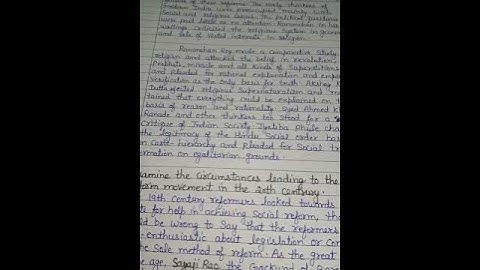 of these reforms. The early thinkers of
modern India were preoccupied mainly with
Social and religious issues. The political questions
were paid little or no attention. Rammohan in his
writings criticized the religious System in general
and role of vested interests in religion.
Rammohan Roy made a Comparative Study
religion and attacked the belief in revelation,
Prophets, miracle and all kinds of Superstitions
and pleaded for rational explanation and
Verification as the only basis for truth. Akshay K
Dutta rejected religious Supernaturalism and
tained that everything could be explained on t
basis of reason and rationality. Syed Ahmed K
Ranade and other thinkers too Stood for a
Critique of Indian Society. Jyotiba Phule cha
the legitimacy of the Hindu Social order bas
on Caste hierarchy and Pleaded for Social tr
ormation on egalitarian grounds.
amine the Circumstances leading to the
orm movement in the 20th Century.
19th century reformers looked towards
te for help in achieving Social reform, tho
ld be wrong to Say that the reformers
-enthusiastic about legislation or Co
the Sole method of reform. As the great
e age, Sayaji Rao, the Gaekwad of Baro